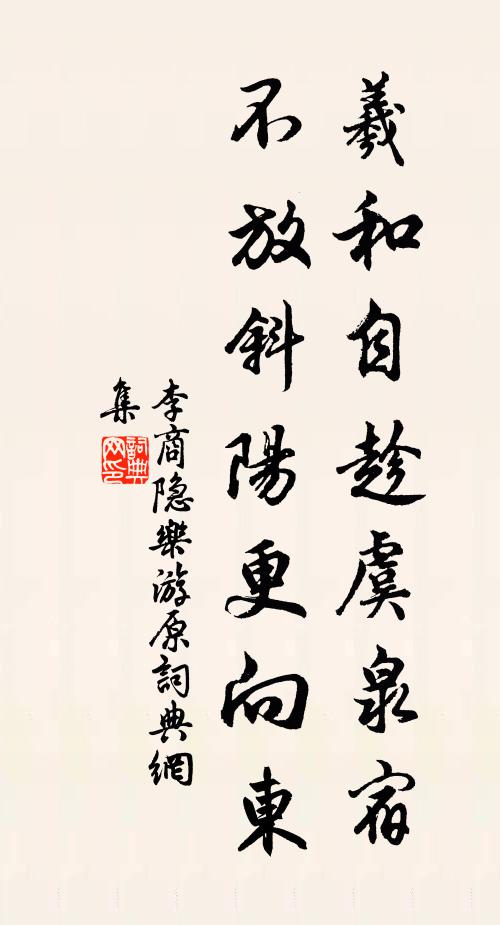 羲和自趁虞泉宿
不放斜陽更向東
李商隐樂游原詞典網
集
詞典网印